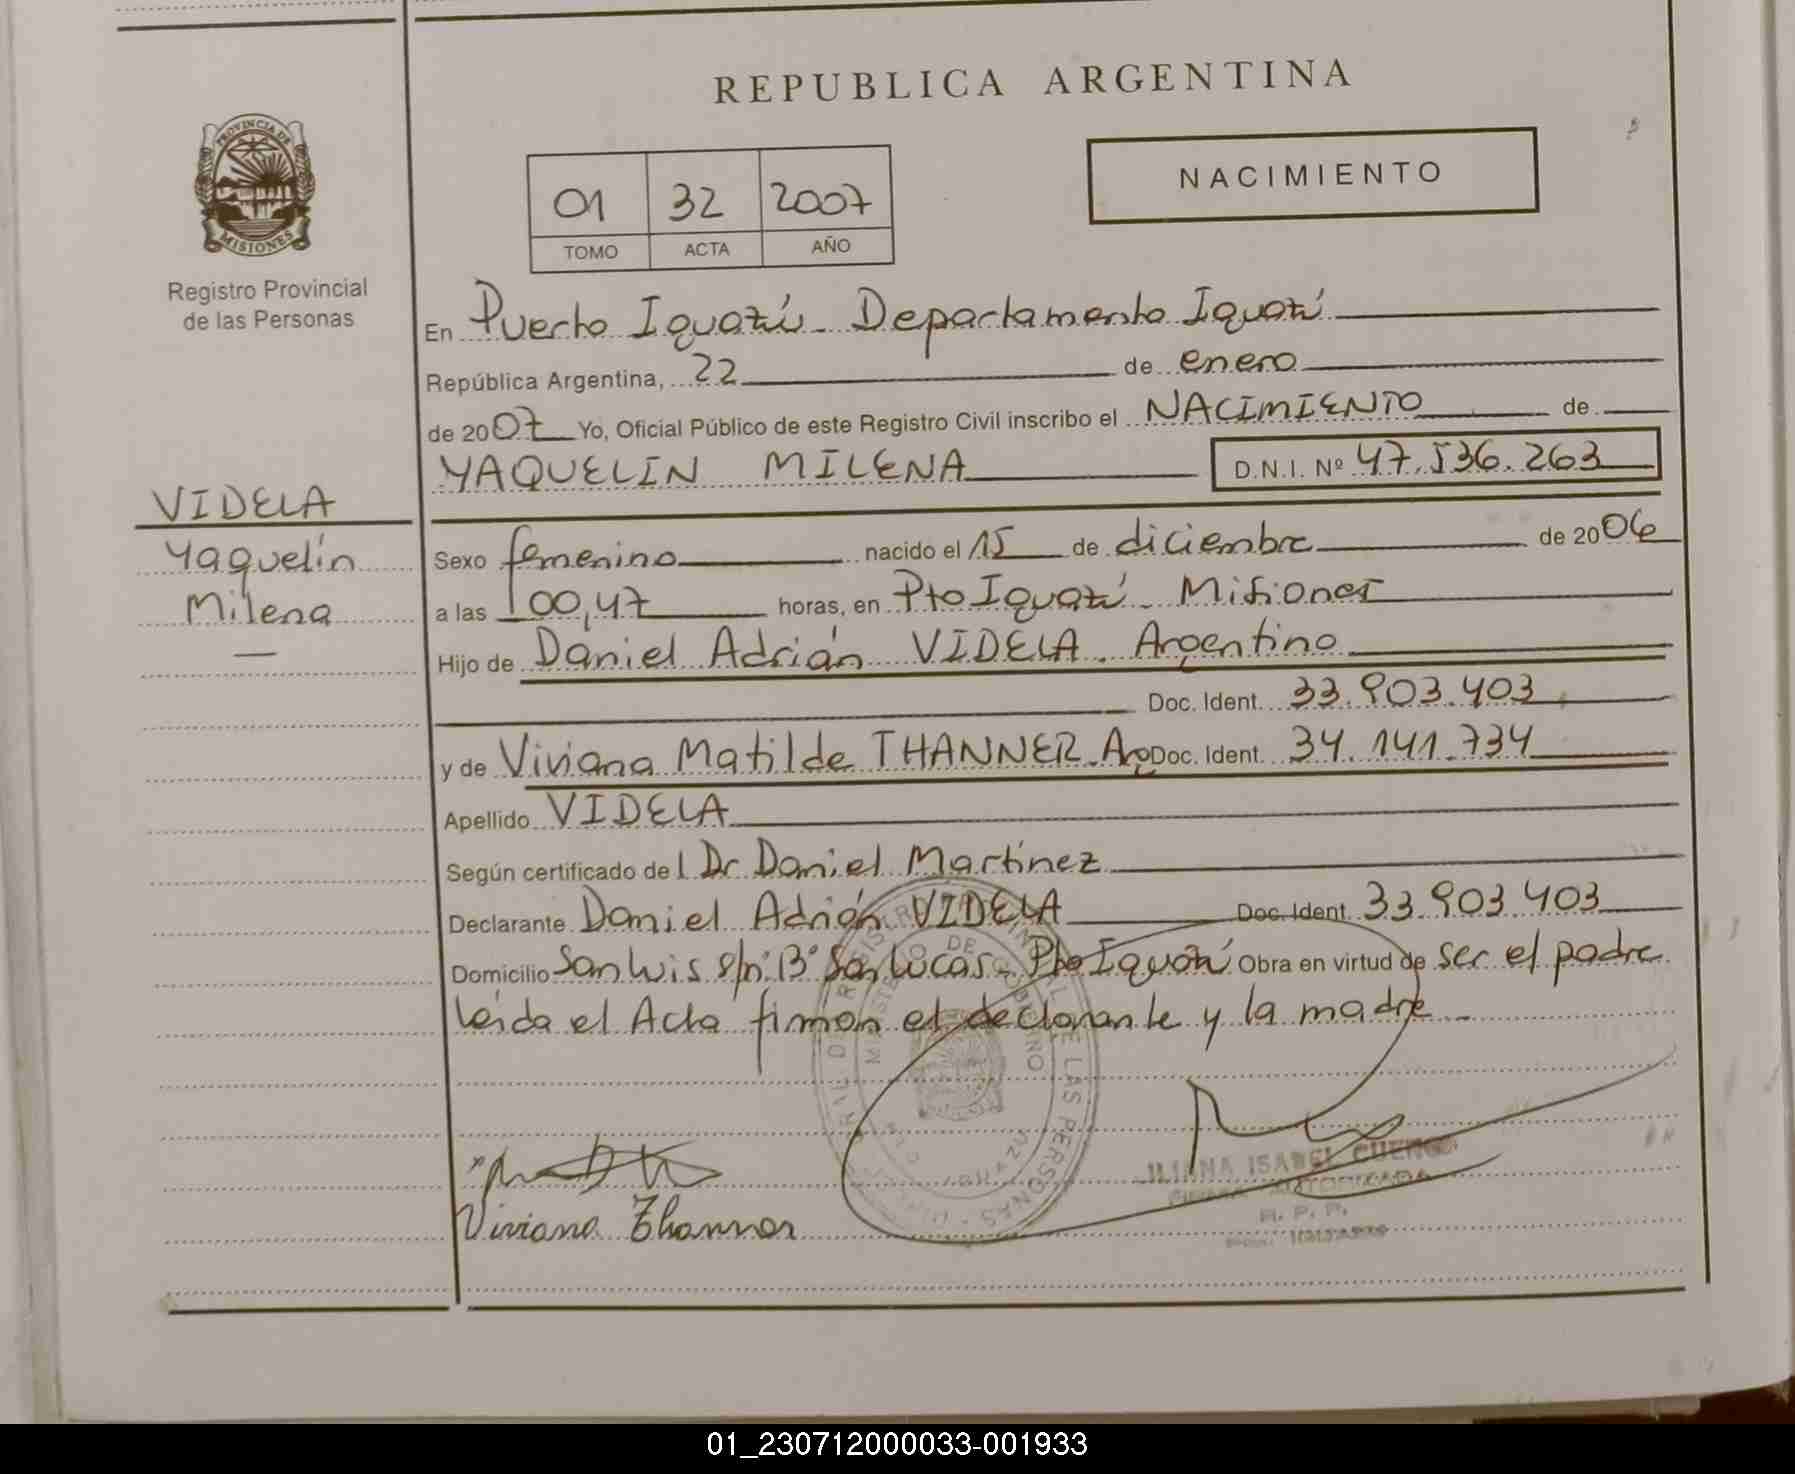 REPUBLICA ARGENTINA
PROVINCIA DE
MISIONES
Registro Provincial
de las Personas
01 32 2007
TOMO ACTA AÑO
NACIMIENTO
En Puerto Iguazú - Departamento Iguazú
República Argentina, 22 de enero
de 2007 Yo, Oficial Público de este Registro Civil inscribo el NACIMIENTO de
YAQUELIN MILENA D.N.I. Nº 47.536.263
VIDELA
Yaquelin
Milena
Sexo femenino nacido el 15 de diciembre de 2006
a las 00,47 horas, en Pto Iguazú - Misiones
Hijo de Daniel Adrián VIDELA. Argentino
Doc. Ident. 33.903.403
y de Viviana Matilde THANNER. Arg Doc. Ident. 34.141.734
Apellido VIDELA
Según certificado del Dr Daniel Martinez
Declarante Daniel Adrián VIDELA Doc. Ident. 33.903.403
Domicilio San Luis s/nº Bº San Lucas - Pto Iguazú Obra en virtud de ser el padre
Leida el Acta firman el declarante y la madre -
DE LAS PERSONAS
MINISTERIO DE GOBIERNO
Viviana Thanner
ISABEL CUENCA
AUTORIZADA
R. P. P.
01_230712000033-001933